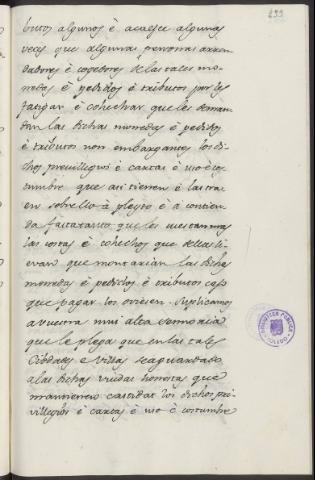 699
butos algunos è acaesce algunas
veces que algunas personas arren
dadores è cogedores de las tales mo-
nedas è pedidos è tributos por les
fatigar è cohechar que les deman-
dan las dichas monedas è pedidos
è tributos non embargantes los di-
chos previllegios è cartas è uso è cos
tumbre que asi tienen è las tra-
en sobre ello à pleyto è à contien-
da fasta tanto que les
las costas è cohechos que dellas li-
evan que montarian las dichas
monedas è pedidos è tributos caso
que pagar los oviesen. Suplicamos
a vuestra mui alta Sennoria
que le plega que en las tales
Cibdades è villas sea guardado
a las dichas viudas honestas que
mantienen castidat los dichos pri-
villegios è cartas è uso è costumbre
BIBLIOTECA PUBLICA
TOLEDO